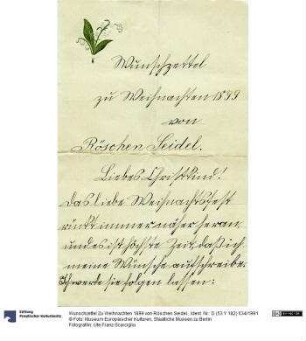 Wunschzettel
zu Weihnachten 1899
von
Röschen Seidel.
Liebes Christkind!
Das liebe Weihnachtsfest
rückt immer näher heran
und es ist höchste Zeit, daß ich
meine Wünsche aufschreibe.
Ich werde sie folgen lassen:
Stiftung
Preußischer Kulturbesitz
Wunschzettel Zu Weihnachten 1899 von Röschen Seidel, Ident. Nr.
© Foto: Museum Europäischer Kulturen, Staatliche Museen zu Berlin
Fotograf/in: Ute Franz-Scarciglia